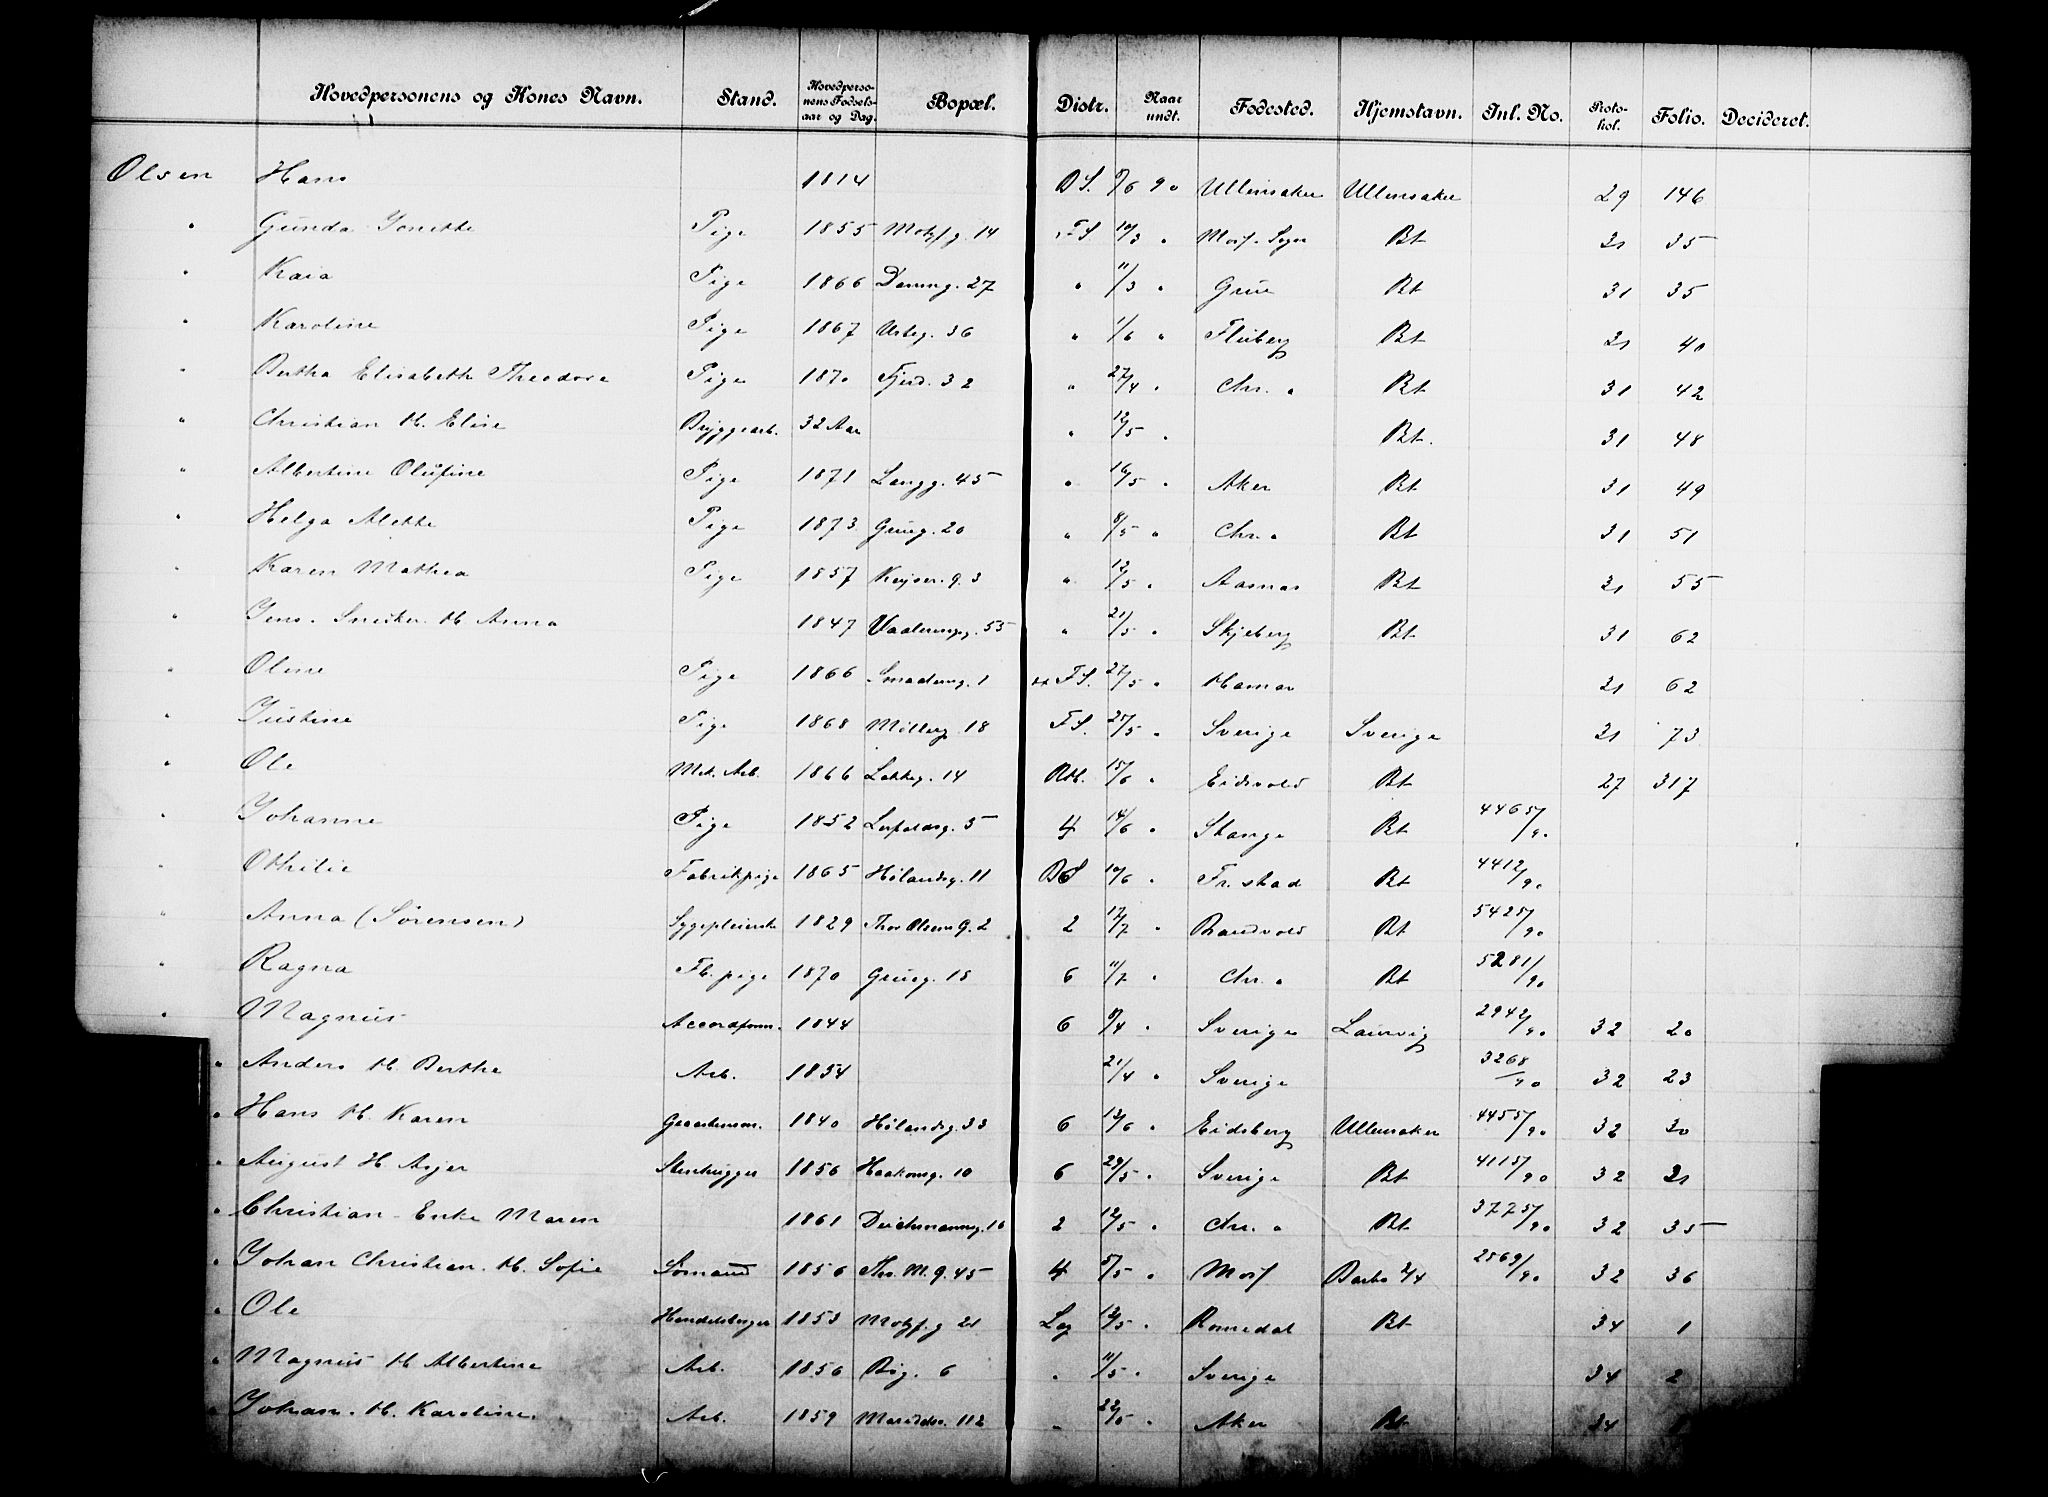 Hovedpersonens og Kones Navn. Stand. Hovedperso-nens Fødsels-aar og Dag. Bopæl. Distr. Naar undt. Fødested. Hjemstavn. Inl. No. Proto-kol. Folio. Decideret.
Olsen Hans 1814 DS. 9/6 90 Ullensaker Ullensaker 29 146
" Gunda Jonette Pige 1855 Motzf.g. 14 FS 10/3 " Bt 31 35
" Kaia Pige 1866 Dammg. 27 " 11/3 " Grue Bt 31 35
" Karoline Pige 1867 Urteg. 36 " 1/6 " Fluberg Bt 31 40
" Bertha Elisabeth Theodora Pige 1870 Fjerd. 32 " 27/4 " Chr. a Bt 31 42
" Christian H. Elise Bryggearb. 32 Aar " 12/5 " Bt. 31 48
" Albertine Olufine Pige 1871 Langg. 45 " 16/5 " Aker Bt 31 49
" Helga Alette Pige 1873 Grueg. 20 " 8/5 " Chr. a Bt 31 51
" Karen Mathea Pige 1857 Keyser.g. 3 " 12/5 " Aasnas Bt 31 55
" Jens. Snedker. H Anna 1847 Vaalerengg. 55 " 21/5 " Skjeberg Bt 31 62
" Oline Pige 1866 Smaleng. 1 FS. 27/5 " Hamar 31 62
" Justine Pige 1868 Møllerg. 18 FS. 25/5 " Sverige Sverige 31 73
" Ole Mek. Arb. 1866 Lakkeg. 14 Rth. 15/6 " Eidsvold Bt 27 317
" Johanne Pige 1852 Leopoldsg. 5 4 14/6 " Stange Bt 4465/90
" Othilie Fabrikpige 1865 Hølandsg. 11 DS 10/6 " Fr. stad Bt 4412/90
" Anna (Sørensen) Sygepleierske 1829 Thor Olsens g. 2 2 17/7 " Brandvold Bt 5425/90
" Ragna Fb. pige 1870 Grueg. 18 6 11/7 " Chr. a Bt 5281/90
" Magnus Accordform. 1844 6 8/4 " Sverige Laurvig 2942/90 32 20
" Anders H Berthe Arb. 1854 21/4 " Sverige 3268/90 32 23
" Hans H. Karen Gaardsmm. 1840 Hølandsg. 33 6 13/6 " Eidsberg Ullensaker 4455/90 32 30
" August H Asjer Stenhugger 1856 Haakonsg. 10 6 29/5 " Sverige Bt 4115/90 32 31
" Christian - Enke Maren 1861 Deichmannsg. 16 2 12/5 " Chr. a Bt 3775/90 32 35
" Johan Christian. H. Sofie Sømand 1856 Thr. M. g. 45 4 5/5 " Moss Barbo 2/4 2569/90 32 36
" Ole Handelsborger 1853 Motzf. g 21 Leg 13/5 " Romedal Bt 34 1
" Magnus H Albertine Arb. 1856 Big. 6 " 11/5 " Sverige 34 2
" Johan. H. Karoline. Arb. 1859 Maridals. 112 " 22/5 " Aker Bt 34